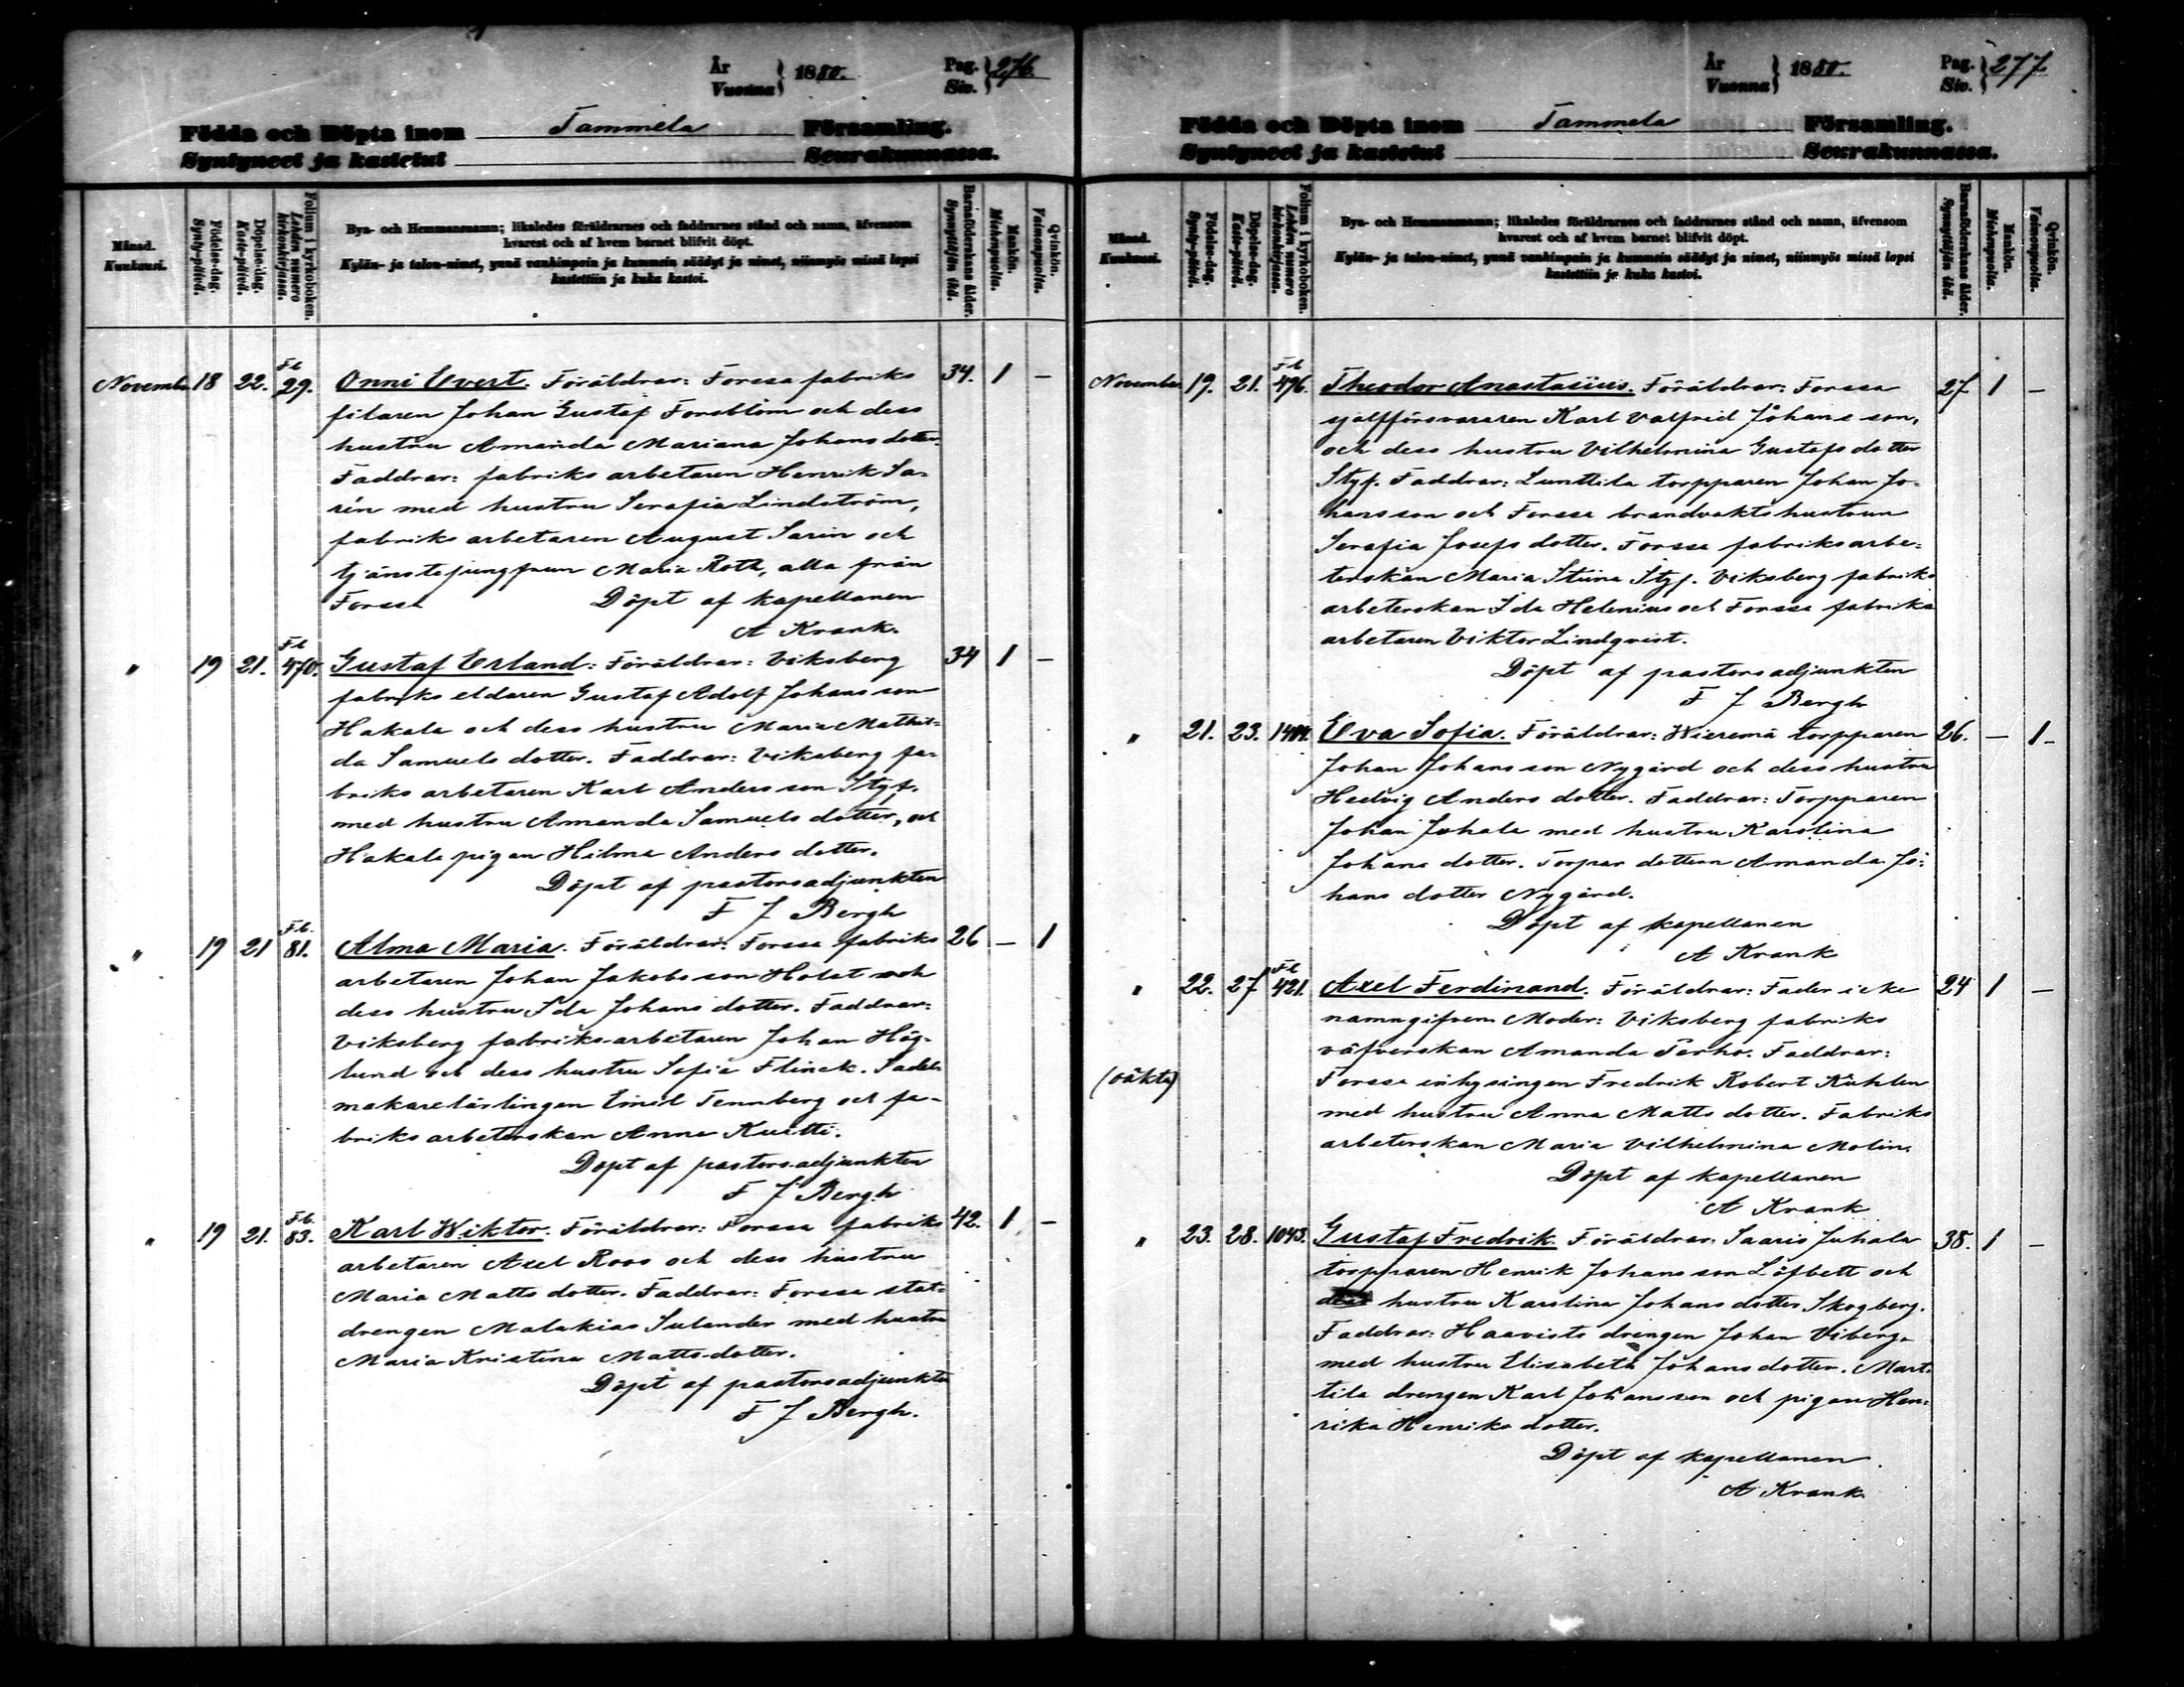 År
Vuonna } 1880.
Pag.
Siv. } 276.
Födda och Döpta inom Tammela Församling.
Syntyneet ja kastetut Seurakunnassa.
Månad.
Kuukausi.
Födelse-dag.
Synty-päivä.
Döpelse-dag.
Kaste-päivä.
Folium i kyrkoboken.
Lehden numero kirkonkirjassa.
Bya- och Hemmansnamn; likaledes föräldrarnes och faddrarnes stånd och namn, äfvensom
hvarest och af hvem barnet blifvit döpt.
Kylän- ja talon-nimet, ynnä vanhimpain ja kummein säädyt ja nimet, niinmyös missä lapsi
kastettiin ja kuka kastoi.
Barnaföderskans ålder.
Synnyttäjän ikä.
Mankön.
Miehenpuolia.
Qvinkön.
Vaimonpuolia.
November 18 22. Fb 29. Onni Evert. Föräldrar: Forssa fabriks 34. 1 –
filaren Johan Gustaf Forsblom och dess
hustru Amanda Mariana Johansdotter.
Faddrar: fabriks arbetaren Henrik Sa-
rén med hustru Serafia Lindström,
fabriks arbetaren August Sarin och
tjänstejungfrun Maria Roth, alla från
Forssa Döpt af kapellanen
A Krank.
" 19 21. Fb 470. Gustaf Erland: Föräldrar: Viksberg 34 1 –
fabriks eldaren Gustaf Adolf Johansson
Hakala och dess hustru Maria Mathil-
da Samuelsdotter. Faddrar: Viksberg fa-
briks arbetaren Karl Andersson Styf.
med hustru Amanda Samuelsdotter, och
Hakala pigan Hilma Andersdotter.
Döpt af pastorsadjunkten
F J Bergh
" 19 21 Fb. 81. Alma Maria. Föräldrar: Forssa fabriks 26 – 1
arbetaren Johan Jakobsson Holst och
dess hustru Ida Johansdotter. Faddrar:
Viksberg fabriks-arbetaren Johan Hög-
lund och dess hustru Sofia Flinck. Sadel-
makarelärlingen Emil Tennberg och fa-
briks arbeterskan Anna Kurtti.
Döpt af pastorsadjunkten
F J Bergh
" 19 21. Fb. 83. Karl Wiktor. Föräldrar: Forssa fabriks 42. 1 –
arbetaren Axel Roos och dess hustru
Maria Mattsdotter. Faddrar: Forssa stat-
drengen Malakias Sulander med hustru
Maria Kristina Mattsdotter.
Döpt af pastorsadjunkten
F J Bergh.
År
Vuonna } 1880.
Pag.
Siv. } 277
Födda och Döpta inom Tammela Församling.
Syntyneet ja kastetut Seurakunnassa.
Månad.
Kuukausi.
Födelse-dag.
Synty-päivä.
Döpelse-dag.
Kaste-päivä.
Folium i kyrkoboken.
Lehden numero kirkonkirjassa.
Bya- och Hemmansnamn; likaledes föräldrarnes och faddrarnes stånd och namn, äfvensom
hvarest och af hvem barnet blifvit döpt.
Kylän- ja talon-nimet, ynnä vanhimpain ja kummein säädyt ja nimet, niinmyös missä lapsi
kastettiin ja kuka kastoi.
Barnaföderskans ålder.
Synnyttäjän ikä.
Mankön.
Miehenpuolia.
Qvinkön.
Vaimonpuolia.
November 19. 21. Fb 476. Theodor Anastasius. Föräldrar: Forssa 27 1 –
sjelfförsvararen Karl Valfrid Johansson,
och dess hustru Vilhelmina Gustafsdotter
Styf. Faddrar: Lunttila torpparen Johan Jo-
hansson och Forssa brandvaktshustrun
Serafia Josefsdotter. Forssa fabriksarbe-
terskan Maria Stiina Styf. Viksberg fabriks
arbeterskan Ida Helenius och Forssa fabriks
arbetaren Viktor Lindqvist.
Döpt af pastorsadjunkten
F J Bergh
" 21. 23. 1404. Eva Sofia. Föräldrar: Wieremä torpparen 26. – 1
Johan Johansson Nygård och dess hustru
Hedvig Andersdotter. Faddrar: Torpparen
Johan Juhala med hustru Karolina
Johansdotter. Torpar dottern Amanda Jo-
hans dotter Nygård.
Döpt af kapellanen
A Krank
" 22. 27 Fb 421. Axel Ferdinand. Föräldrar: Fader icke 24 1 –
namngifven Moder: Viksberg fabriks
väfverskan Amanda Terho. Faddrar:
(oäkta) Forssa inhysingen Fredrik Robert Kuhlen
med hustru Anna Mattsdotter. Fabriks
arbeterskan Maria Vilhelmina Molin.
Döpt af kapellanen
A Krank
" 23. 28. 1043. Gustaf Fredrik. Föräldrar: Saaris Juhala 38. 1 –
torpparen Henrik Johansson Löfbett och
dess hustru Karolina Johansdotter Skogberg.
Faddrar: Haavisto drengen Johan Viberg
med hustru Elisabeth Johansdotter. Mart-
tila drengen Karl Johansson och pigan Hen-
rika Henriksdotter.
Döpt af kapellanen
A Krank